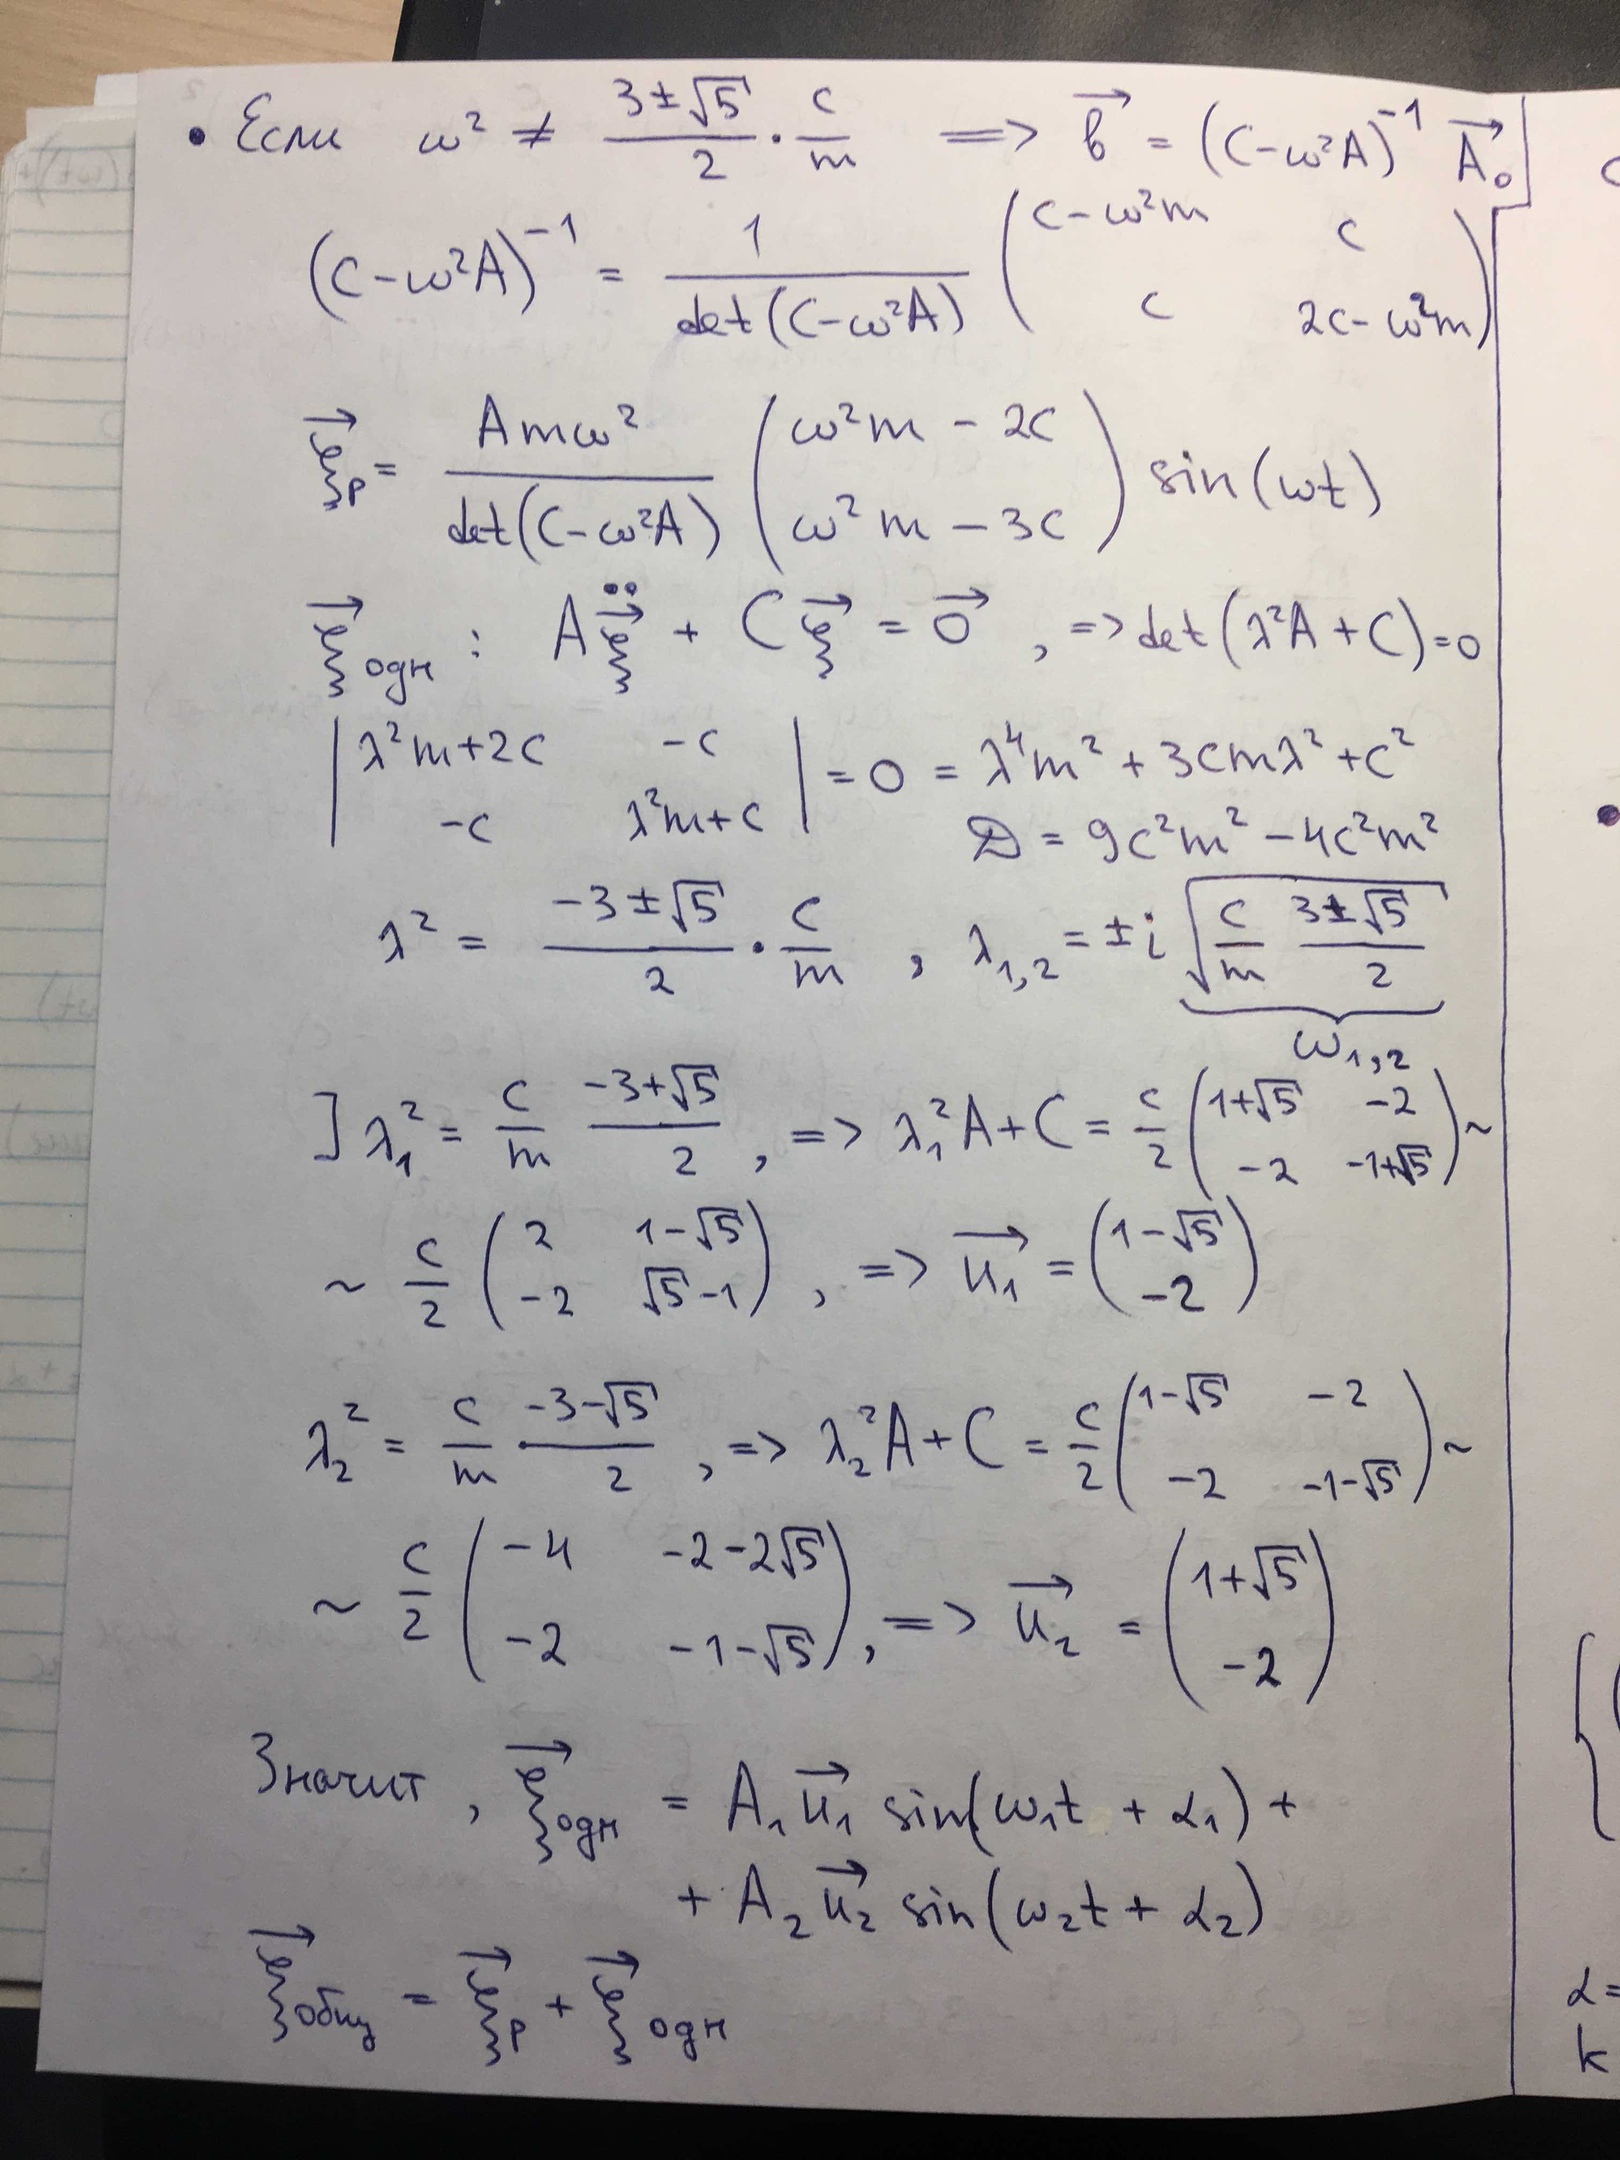 • Если ω² ≠ (3±√5)/2 · c/m => b⃗ = (C-ω²A)⁻¹ A⃗₀
(C-ω²A)⁻¹ = 1/det(C-ω²A) (c-ω²m c; c 2c-ω²m)
ξ⃗ₚ = Amω²/det(C-ω²A) (ω²m - 2c; ω²m - 3c) sin(ωt)
ξ⃗одн : Aξ⃗̈ + Cξ⃗ = 0⃗ , => det(λ²A + C) = 0
|λ²m+2c -c; -c λ²m+c| = 0 = λ⁴m² + 3cmλ² + c²
D = 9c²m² - 4c²m²
λ² = (-3±√5)/2 · c/m , λ₁,₂ = ±i √(c/m (3±√5)/2)
ω₁,₂
] λ₁² = c/m (-3+√5)/2 , => λ₁²A + C = c/2 (1+√5 -2; -2 -1+√5) ~
~ c/2 (2 1-√5; -2 √5-1) , => u₁⃗ = (1-√5; -2)
λ₂² = c/m · (-3-√5)/2 , => λ₂²A + C = c/2 (1-√5 -2; -2 -1-√5) ~
~ c/2 (-4 -2-2√5; -2 -1-√5) , => u₂⃗ = (1+√5; -2)
Значит , ξ⃗одн = A₁u₁⃗ sin(ω₁t + α₁) +
+ A₂u₂⃗ sin(ω₂t + α₂)
ξ⃗общ = ξ⃗ₚ + ξ⃗одн
α=
k